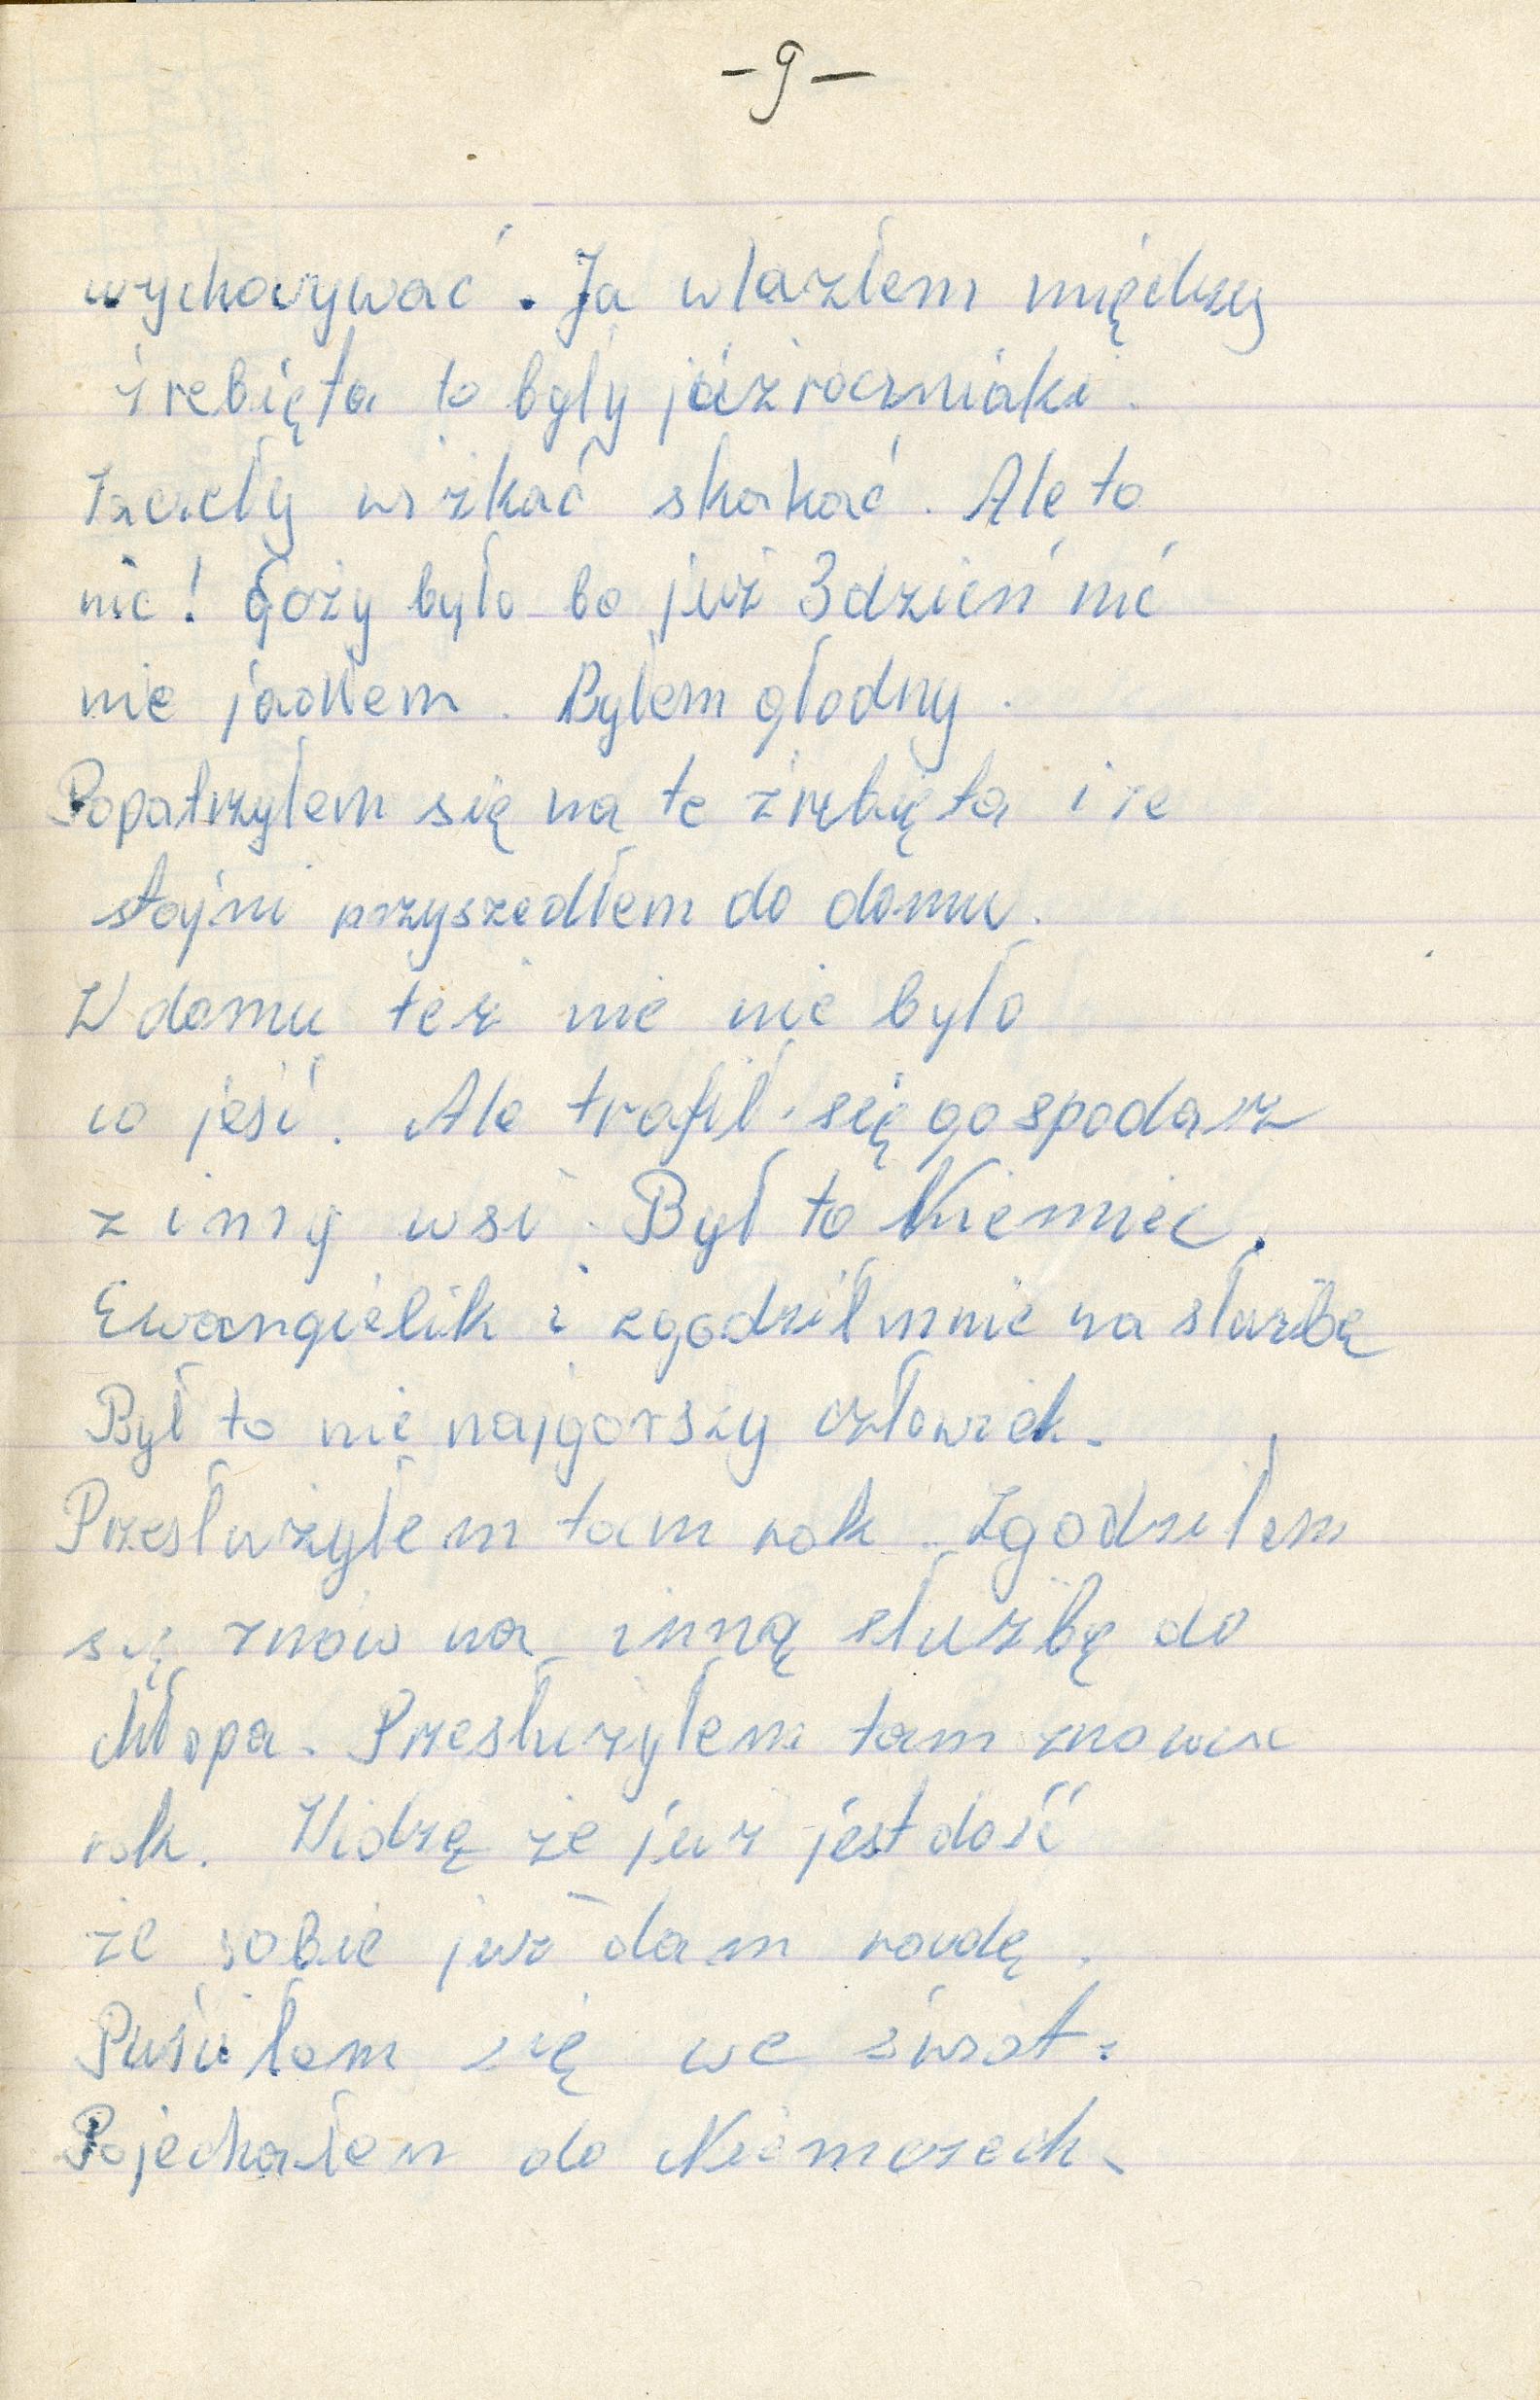 -9-
wychowywać. Ja wlazłem między
źrebięta to były jóż roczniaki.
Zaczeły wiżkać skakać. Ale to
nic! Goży było bo już 3 dzień nić
nie jadłem. Byłem głodny.
Popatrzyłem się na te źrebięta i ze
stajni przyszedłem do domu.
W domu też nie nie było
co jeść. Ale trafił się gospodarz
z inny wsi. Był to Niemiec.
Ewangielik i zgodził mnie na służbę
Był to nie najgorszy człowiek.
Przesłużyłem tam rok. Zgodziłem
się znów na inną służbę do
chłopa. Przesłużyłem tam znowu
rok. Widzę że już jest dość
że sobie już dam raudę.
Puściłem się we świat.
Pojechałem do Niemczech.